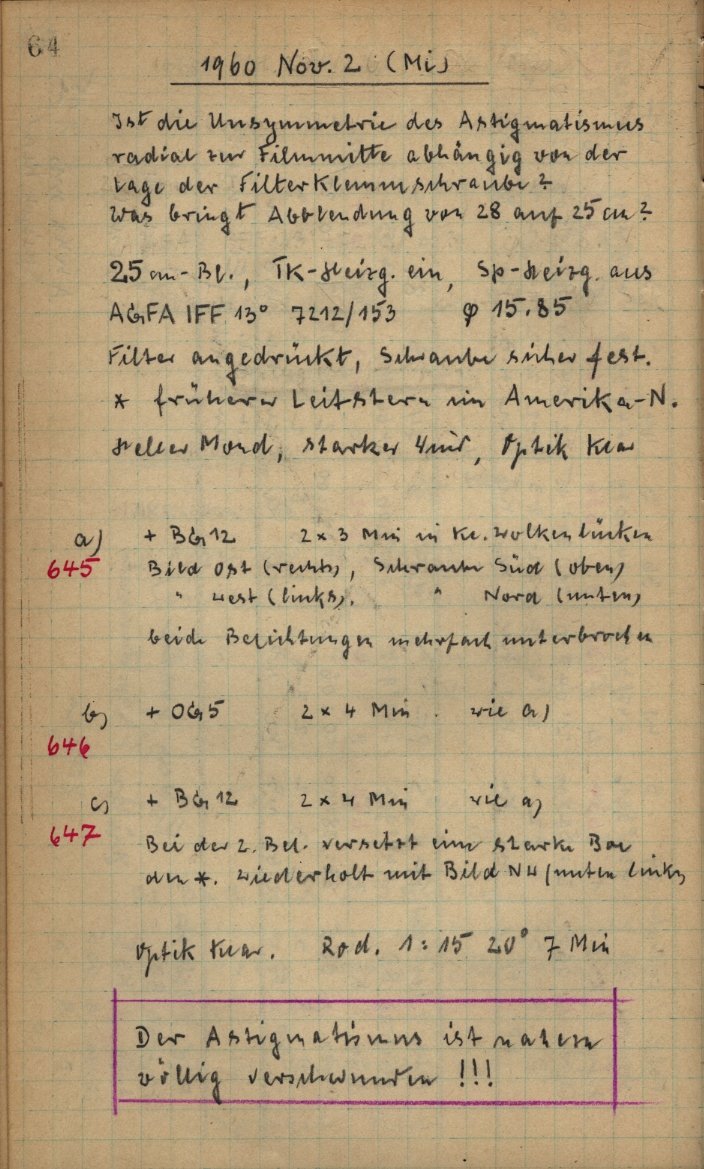 64
1960 Nov. 2 (Mi)
Ist die Unsymmetrie des Astigmatismus
radial zur Filmmitte abhängig von der
Lage der Filterklemmschraube?
Was bringt Abblendung von 28 auf 25 cm?
25 cm-Bl., TK-Heizg. ein, Sp-Heizg. aus
AGFA IFF 13° 7212/153 φ 15.85
Filter angedrückt, Schraube sicher fest.
* früherer Leitstern im Amerika-N.
Heller Mond, starker Wind, Optik klar
a) + BG 12 2 x 3 Min in kl. Wolkenlücken
645 Bild Ost (rechts), Schraube Süd (oben)
" West (links), " Nord (unten)
beide Belichtungen mehrfach unterbrochen
b) + OG 5 2 x 4 Min. wie a)
646
c) + BG 12 2 x 4 Min wie a)
647 Bei der 2. Bel. versetzt eine starke Boe
den *. Wiederholt mit Bild NW (unten links)
Optik klar. Rod. 1:15 20° 7 Min
Der Astigmatismus ist nahezu
völlig verschwunden !!!